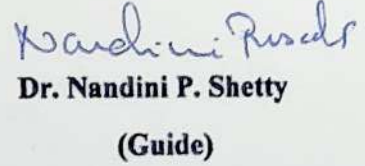 Nandini
Dr. Nandini P. Shetty
(Guide)